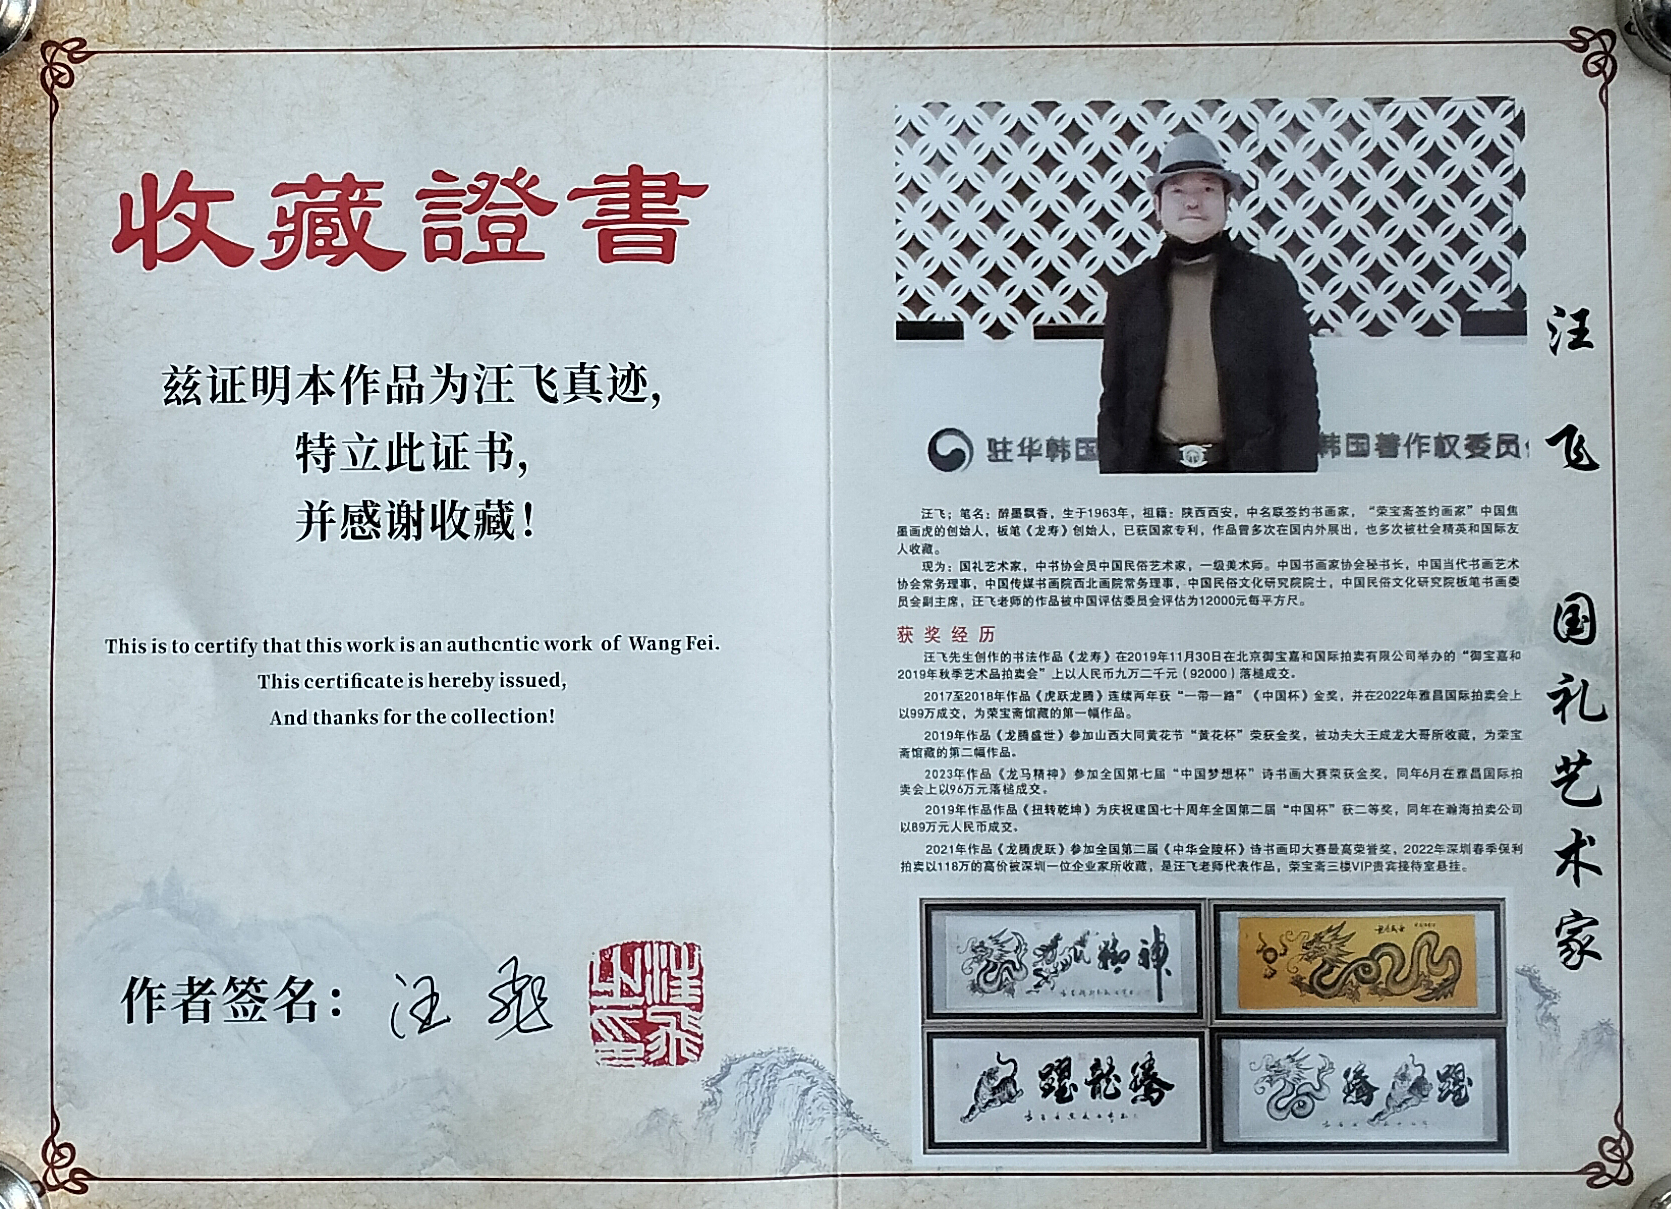 收藏證書
兹证明本作品为汪飞真迹,
特立此证书,
并感谢收藏!
This is to certify that this work is an authcntic work of Wang Fei.
This certificate is hereby issued,
And thanks for the collection!
作者签名: 汪飛
驻华韩国 韩国著作权委员
汪飞；笔名：醉墨飘香，生于1963年，祖籍：陕西西安，中名联签约书画家，“荣宝斋签约画家”中国焦
墨画虎的创始人，板笔《龙寿》创始人，已获国家专利，作品曾多次在国内外展出，也多次被社会精英和国际友
人收藏。
现为：国礼艺术家，中书协会员中国民俗艺术家，一级美术师。中国书画家协会秘书长，中国当代书画艺术
协会常务理事，中国传媒书画院西北画院常务理事，中国民俗文化研究院院士，中国民俗文化研究院板笔书画委
员会副主席，汪飞老师的作品被中国评估委员会评估为12000元每平方尺。
获奖经历
汪飞先生创作的书法作品《龙寿》在2019年11月30日在北京御宝嘉和国际拍卖有限公司举办的“御宝嘉和
2019年秋季艺术品拍卖会”上以人民币九万二千元（92000）落槌成交。
2017至2018年作品《虎跃龙腾》连续两年获“一带一路”《中国杯》金奖，并在2022年雅昌国际拍卖会上
以99万成交，为荣宝斋馆藏的第一幅作品。
2019年作品《龙腾盛世》参加山西大同黄花节“黄花杯”荣获金奖，被功夫大王成龙大哥所收藏，为荣宝
斋馆藏的第二幅作品。
2023年作品《龙马精神》参加全国第七届“中国梦想杯”诗书画大赛荣获金奖，同年6月在雅昌国际拍
卖会上以96万元落槌成交。
2019年作品作品《扭转乾坤》为庆祝建国七十周年全国第二届“中国杯”获二等奖，同年在瀚海拍卖公司
以89万元人民币成交。
2021年作品《龙腾虎跃》参加全国第二届《中华金陵杯》诗书画印大赛最高荣誉奖，2022年深圳春季保利
拍卖以118万的高价被深圳一位企业家所收藏，是汪飞老师代表作品，荣宝斋三楼VIP贵宾接待室悬挂。
躍龍騰
騰 躍
汪飞 国礼艺术家